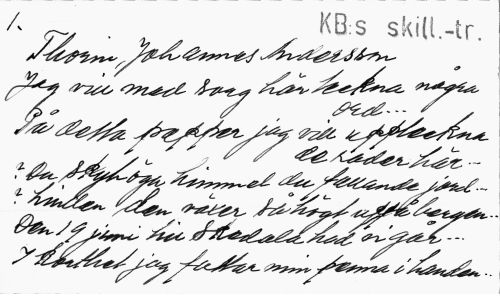 1.
KB:s skill.-tr.
Thorin, Johannes Andersson
Jag vill med sorg här teckna några
ord...
På detta papper jag vill uppteckna
de rader här..
? Du skyhöga himmel du fallande jord..
? hinden den råler så högt uppå bergen..
Den 19 juni till Skedala hed vi går...
I korthet jag fattar min penna i handen..